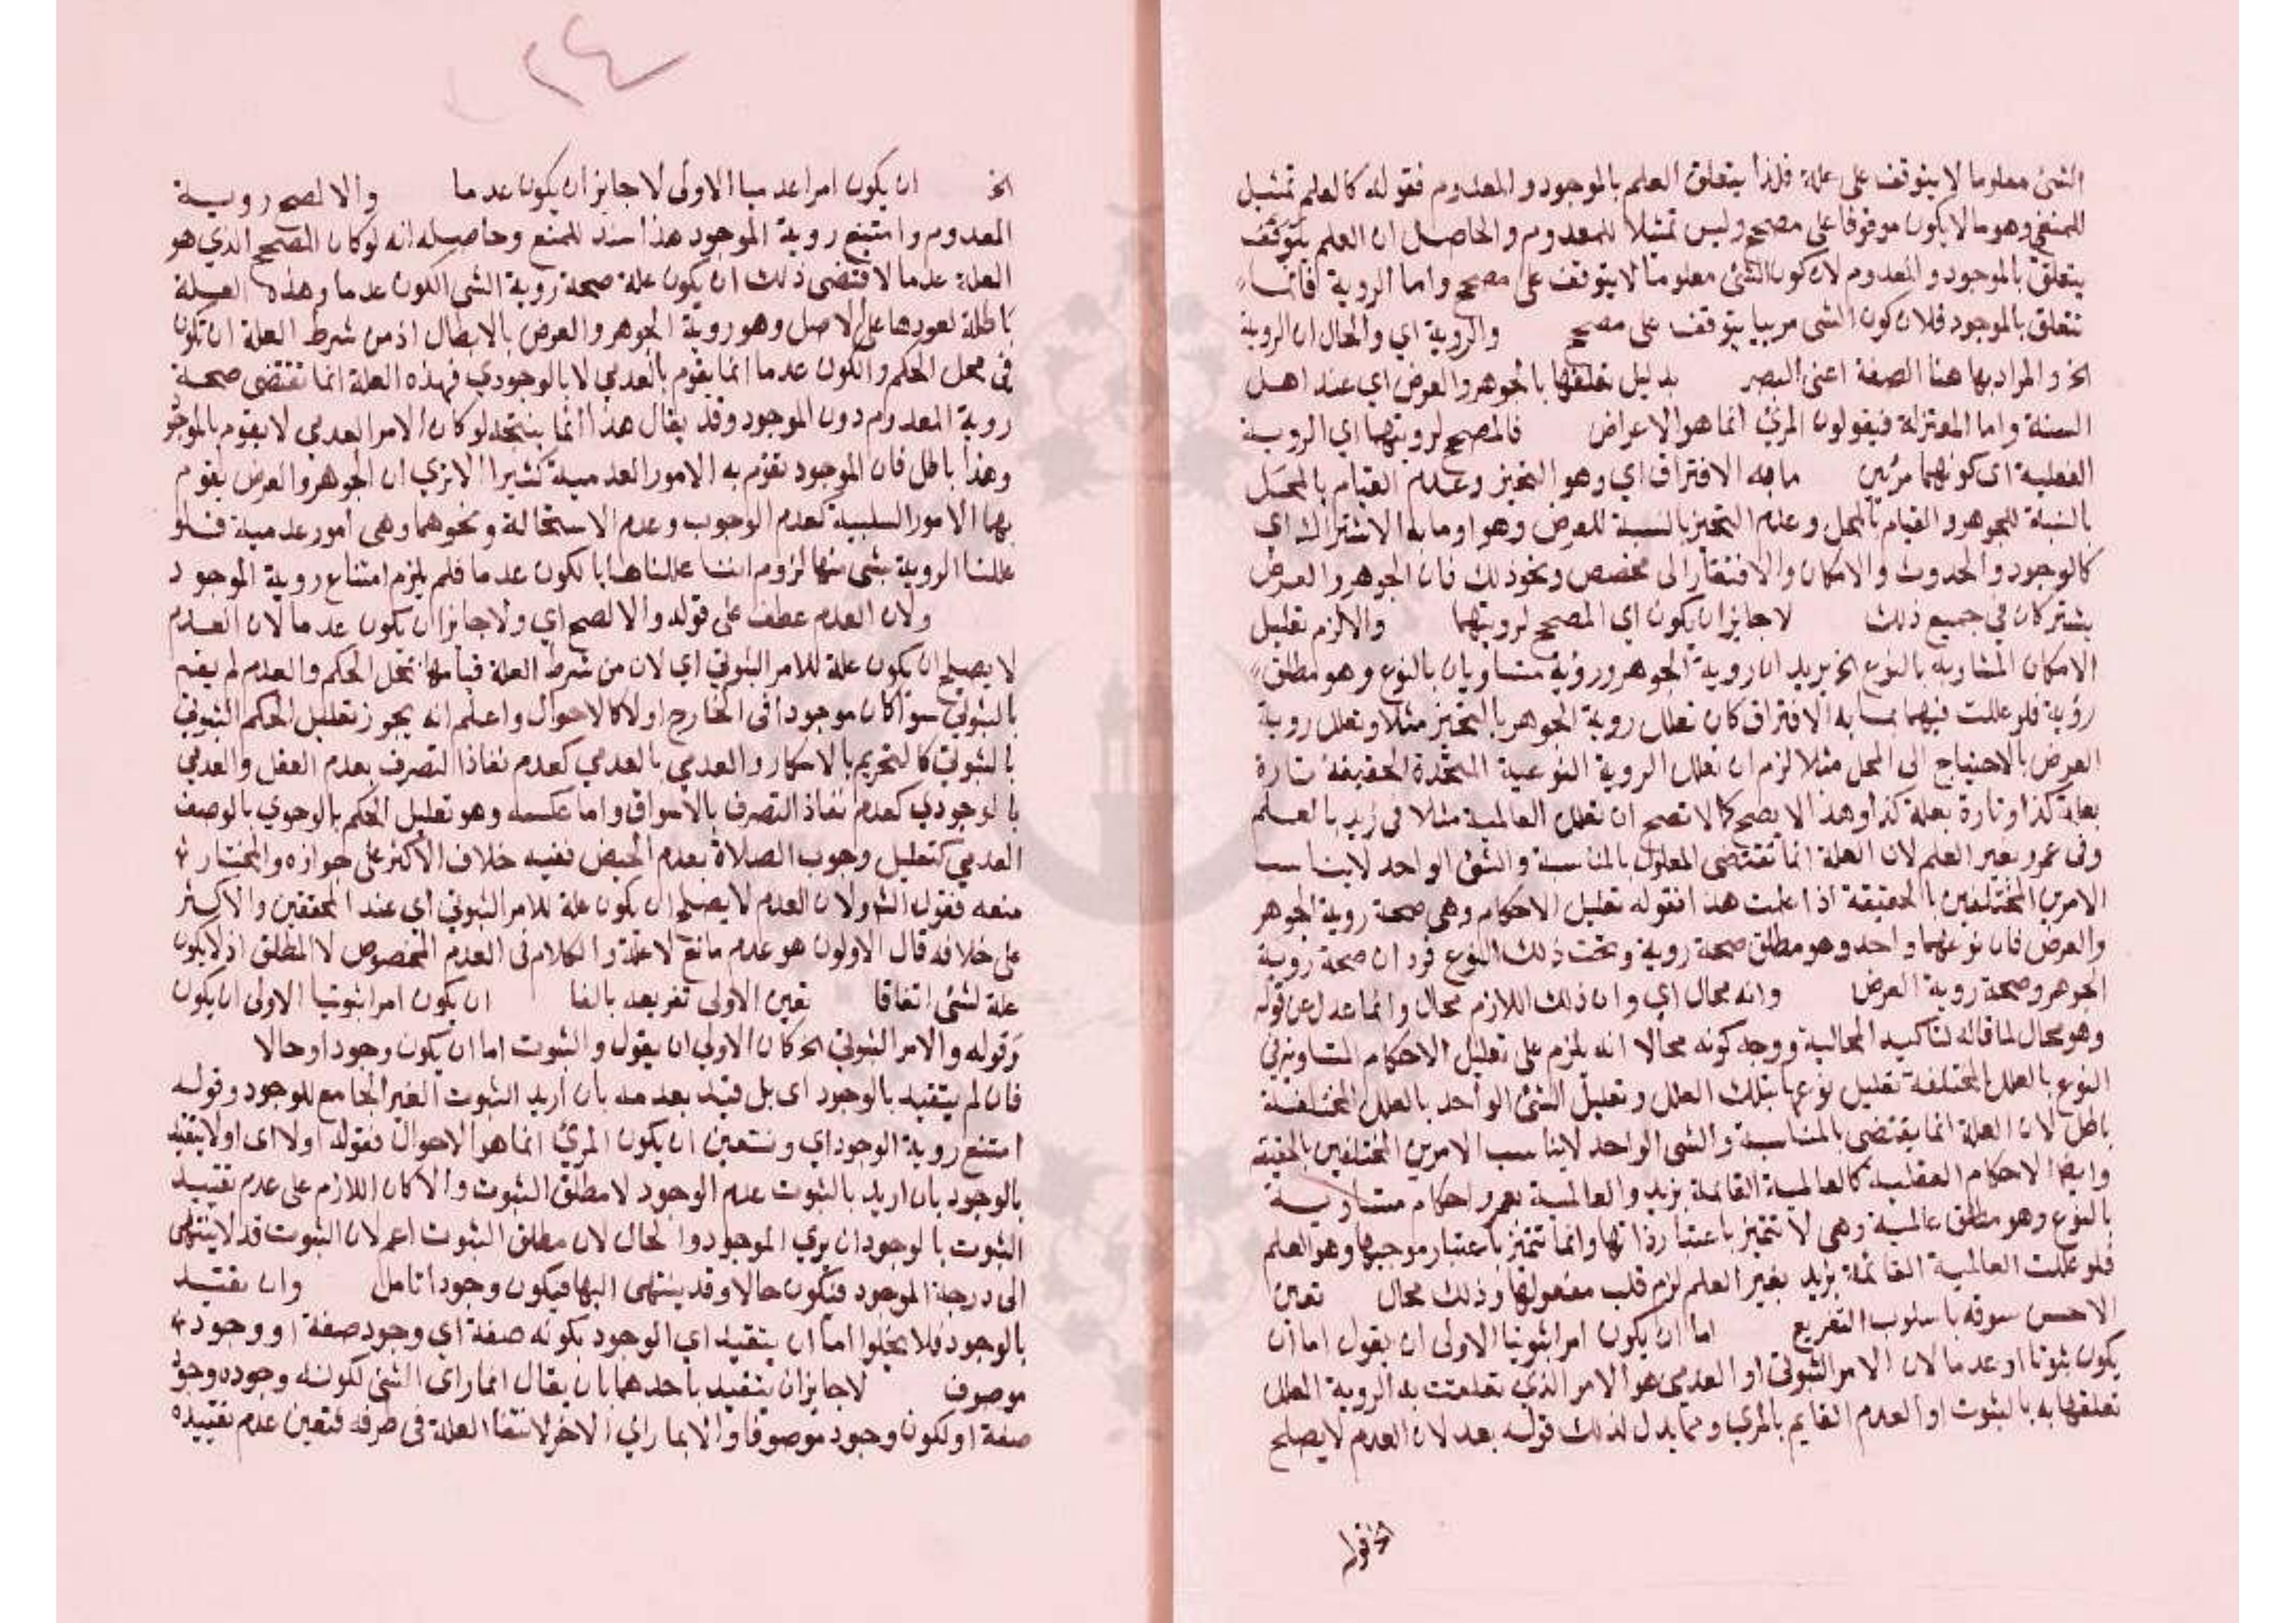 الشئ معلوما لا يتوقف على علة فلذا يتعلق العلم بالموجود والمعدوم فقوله كالعلم تمثيل
للمنفي وهو ما لا يكون موقوفا على مصحح وليس تمثيلا للمعدوم والحاصل ان العلم يتوقف
يتعلق بالموجود والمعدوم لان كون الشئ معلوما لا يتوقف على مصحح واما الروية فانما
تتعلق بالموجود فلان كون الشى مرييا يتوقف على مصحح والروية اي والحال ان الروية
الخ والمراد بها هنا الصفة اعنى البصر بدليل تعلقها بالجوهر والعرض اي عند اهل
السنة واما المعتزلة فيقولون المرئ انما هو الاعراض فالمصحح لرويتهما اي الروية
الفعلية اى كونهما مرئين ما به الافتراق اي وهو التحيز وعدم القيام بالمحل
بالنسبة للجوهر والقيام بالمحل وعدم التحيز بالنسبة للعرض وهو او ما به الاشتراك اى
كالوجود والحدوث والامكان والافتقار الى مخصص ونحو ذلك فان الجوهر والعرض
يشتركان في جميع ذلك لا جايز ان يكون اي المصحح لرويتهما والا لزم تعليل
الامكان المتساويه بالنوع الخ يريد ان روية الجوهر ورؤية متساويان بالنوع وهو مطلق
رؤية فلو عللت فيهما بما به الافتراق كان تعلل روية الجوهر بالتحيز مثلا وتعلل روية
العرض بالاحتياج الى المحل مثلا لزم ان تعلل الروية النوعية المتحدة الحقيقة تارة
بعلة كذا وتارة بعلة كذا وهذا لا يصح كما لا تصح ان تعلل العالمية مثلا فى زيد بالعلم
وفى عمرو بغير العلم لان العلة انما تقتضى المعلول بالمناسبة والشئ الواحد لا يناسب
الامرين المختلفين بالحقيقة اذا علمت هذا فقوله تعليل الاحكام وهي صحة روية الجوهر
والعرض فان نوعهما واحد وهو مطلق صحة روية وتحت ذلك النوع فرد ان صحة روية
الجوهر وصحة روية العرض وانه محال اي وان ذلك اللازم محال وانما عدل عن قوله
وهو محال لما قاله لتاكيد المحالية ووجه كونه محالا انه يلزم على تعليل الاحكام المتساوية في
النوع بالعلل المختلفة تعليل نوعها بتلك العلل وتعليل الشئ الواحد بالعلل المختلفة
باطل لان العلة انما يقتضى بالمناسبة والشى الواحد لا يناسب الامرين المختلفين بالحقيقة
وايضا الاحكام العقلية كالعالمية القائمة بزيد والعالمية بعمرو احكام متساوية
بالنوع وهو مطلق عالمية وهى لا تتميز باعتبار ذاتها وانما تتميز باعتبار موجبها وهو العلم
فلو عللت العالمية القائمة بزيد بغير العلم لزم قلب معقولها وذلك محال تعين
الاحسن سوقه باسلوب التفريع اما ان يكون امرا ثبوتيا الاولى ان يقول اما ان
يكون ثبوتا او عدما لان الامر الثبوتى او العدمى هو الامر الذي تعلقت به الروية المعلل
تعلقها به بالثبوت او العدم القايم بالمرى ومما يدل لذلك قوله بعد لان العدم لا يصلح
٢٤
الخ ان يكون امرا عدميا الاولى لا جايز ان يكون عدما والا لصح روية
المعدوم وامتنع روية الموجود هذا سند للمنع وحاصله انه لو كان المصحح الذي هو
العلة عدما لاقتضى ذلك ان يكون علة صحة روية الشى الكون عدما وهذه العلة
باطلة لعودها على الاصل وهو روية الجوهر والعرض بالابطال اذ من شرط العلة ان تكون
فى محل الحكم والكون عدما انما يقوم بالعدمي لا بالوجودي فهذه العلة انما تقتضى صحة
روية المعدوم دون الموجود وقد يقال هذا انما ينتجه لو كان الامر العدمي لا يقوم بالموجود
وهذا باطل فان الموجود تقوم به الامور العدمية كثيرا الا تري ان الجوهر والعرض يقوم
بهما الامور السلبية كعدم الوجوب وعدم الاستحالة ونحوهما وهى امور عدمية فلو
عللنا الروية بشى منها لزوم اننا عللناها بالكون عدما فلم يلزم امتناع روية الموجود
ولان العدم عطف على قوله والا لصح اي ولا جايز ان يكون عدما لان العدم
لا يصلح ان يكون علة للامر الثبوتي اي لان من شرط العلة قيامها بمحل الحكم والعدم لم يقم
بالثبوتي سوا كان موجودا فى الخارج او لا كالاحوال واعلم انه يجوز تعليل الحكم الثبوتي
بالثبوتي كالتحريم بالاسكار والعدمي بالعدمي كعدم نفاذ التصرف بعدم العقل والعدمي
بالوجودي كعدم نفاذ التصرف بالاسراف واما عكسه وهو تعليل الحكم بالوجودي بالوصف
العدمي كتعليل وجوب الصلاة بعدم الحيض ففيه خلاف الاكثر على جوازه والمختار
منعه فقول الشر ولان العدم لا يصلح ان يكون علة للامر الثبوتي اي عند المحققين والاكثر
على خلافه قال الاولون هو عدم مانع لا علة والكلام فى العدم المخصوص لا المطلق اذ لا يكون
علة لشئ اتفاقا تعين الاولى تفريعه بالفا ان يكون امرا ثبوتيا الاولى ان يكون
وقوله والامر الثبوتي الخ كان الاولى ان يقول والثبوت اما ان يكون وجودا او حالا
فان لم يتقيد بالوجود اى بل قيد بعدمه بان اريد الثبوت الغير الجامع للوجود وقوله
امتنع روية الوجود اي ونستعين ان يكون المرئ انما هو الاحوال فقوله اولا اى او لا يتقيد
بالوجود بان اريد بالثبوت عدم الوجود لا مطلق الثبوت والا كان اللازم على عدم تقييد
الثبوت بالوجود ان يري الموجود والحال لان مطلق الثبوت اعم لان الثبوت قد لا ينتهى
الى درجة الموجود فيكون حالا وقد ينتهى اليها فيكون وجودا تامل وان تقيد
بالوجود فلا يخلوا اما ان يتقيد اي الوجود بكونه صفة اي وجود صفة او وجود
موصوف لا جايز ان يتقيد باحدهما بان يقال انما راى الشئ لكونه وجوده وجود
صفة او لكون وجود موصوفا والا بما راي الاخر لانتفا العلة فى طرفه فتعين عدم تقييده